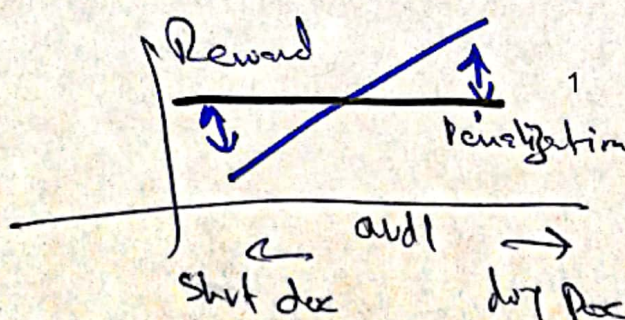 Reward
1
Penalization
avdl
Short doc
long Doc